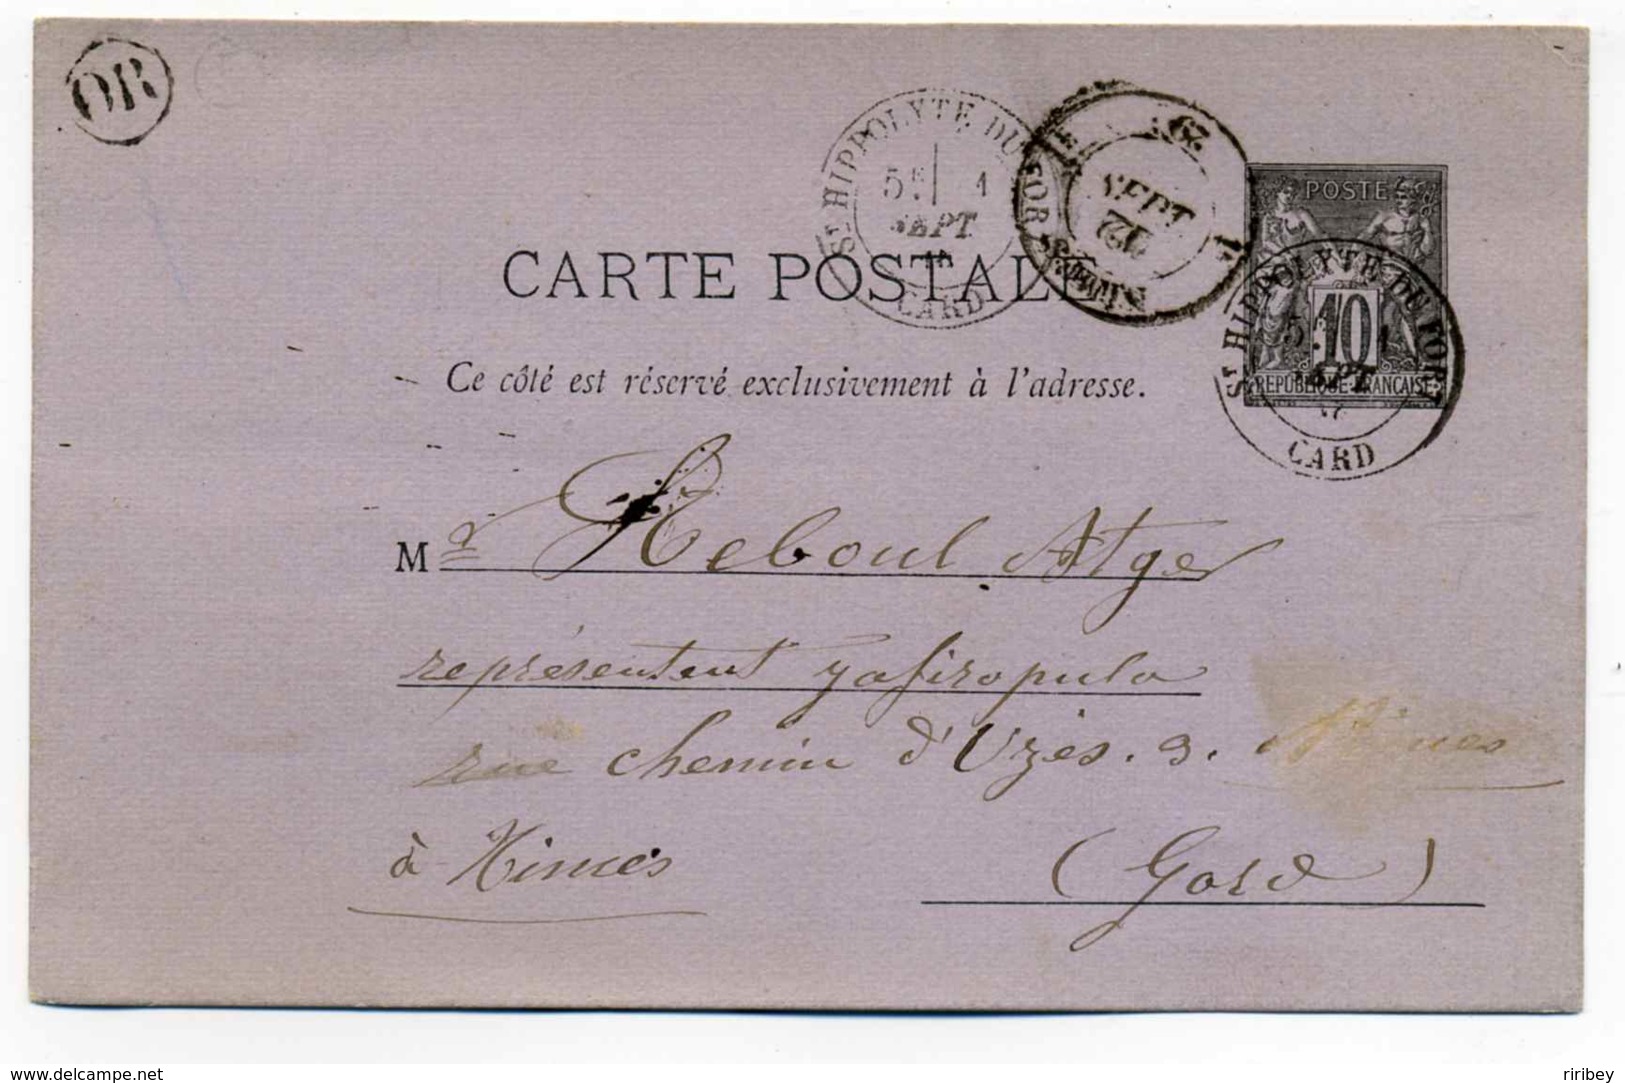 OR
ST HIPPOLYTE DU FORT
5E 1
SEPT
GARD
29
SEPT
POSTE
10
REPUBLIQUE FRANCAISE
ST HIPPOLYTE DU FORT
GARD
CARTE POSTALE
Ce côté est réservé exclusivement à l'adresse.
Mr Reboul Atger
représentent Zafiropulo
rue chemin d'Uzès. 3. Nimes
à Nimes (Gard)
www.delcampe.net
ririBey